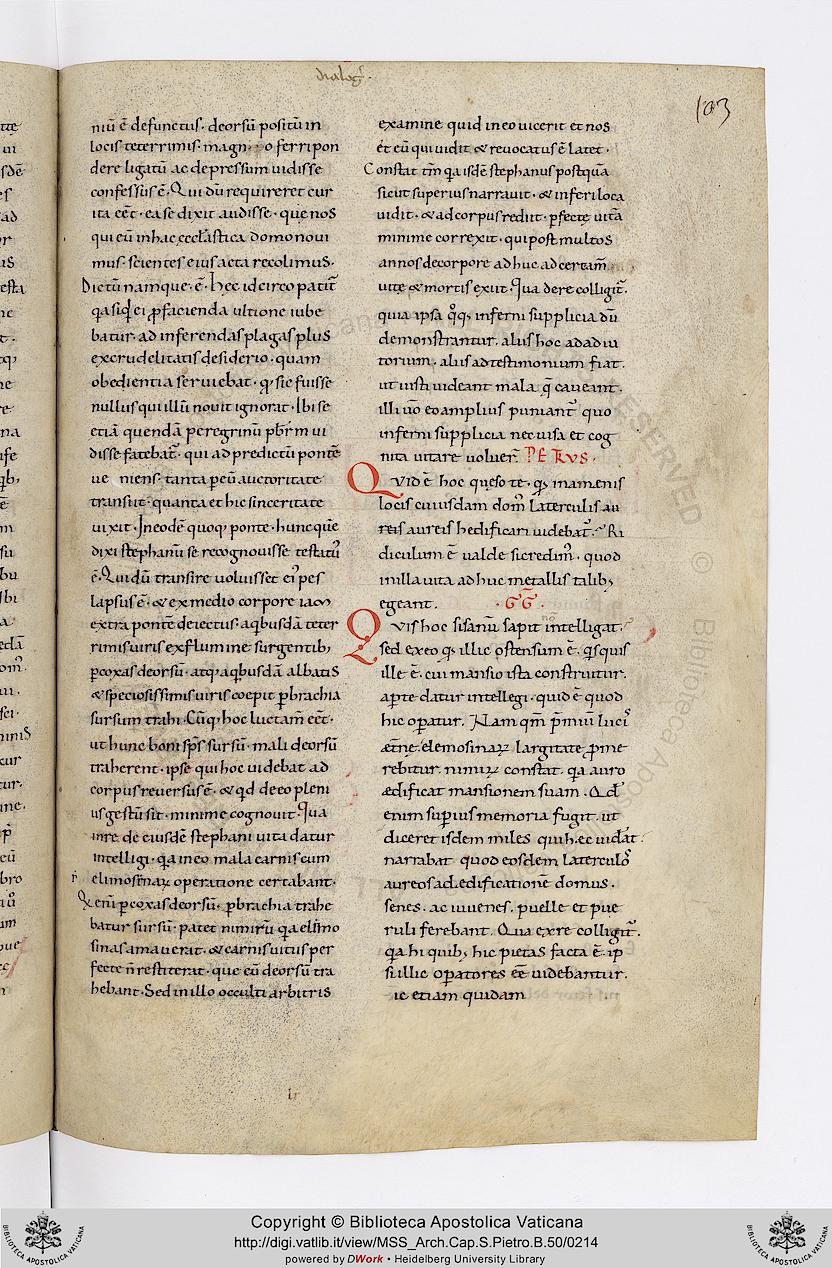 dialog̃.
103
niũ ẽ defunctus. deorsũ positũ in
locis teterrimis. magno o ferri pon
dere ligatũ ac depressum uidisse
confessus ẽ. Qui dũ requireret cur
ita eẽt. ea se dixit audisse. que nos
qui eũ in hac ęcclãstica domo noui
mus. scientes eius acta recolimus.
Dictũ namque. ẽ. hec idcirco patit̃
q̃a siq̃ ei p̱ facienda ultione iube
batur. ad inferendas plagas plus
ex crudelitatis desiderio. quam
obedientia seruiebat. q̃ sic fuisse
nullus qui illũ nouit ignorat. Ibi se
etiã quendã peregrinũ pb̃rm ui
disse fatebat̃. qui ad predictũ pontẽ
ue niens. tanta p eũ auctoritate
transiit. quanta et hic sinceritate
uixit. In eodẽ quoq; ponte. hunc quẽ
dixi stephanũ se recognouisse testatũ
ẽ. Qui dũ transire uoluisset ei᷒ pes
lapsus ẽ. & ex medio corpore iam
extra pontẽ deiectus. aq̃busdã teter
rimis uiris ex flumine surgentib;
p coxas deorsũ. atq; aq̃busdã albatis
& speciosissimis uiris coepit p brachia
sursum trahi. Cũq; hoc luctam̃ eẽt.
ut hunc boni sp̃s sursũ. mali deorsũ
traherent. ipse qui hoc uidebat ad
corpus reuersus ẽ. & qd̃ de eo pleni
us gestũ sit. minime cognouit. Qua
in re de eiusdẽ stephani uita datur
intelligi. q̃a in eo mala carnis cum
elimosinaꝝ operatione certabant.
Q̃ eni᷒ p coxas deorsũ. p brachia trahe
batur sursũ. patet nimirũ q̃a elimo
sinas amauerat. & carnis uitiis per
fecte ñ restiterat. que eũ deorsũ tra
hebant. Sed in illo occulti arbitris
examine quid in eo uicerit et nos
et eũ qui uidit & reuocatus ẽ latet.
Constat tm̃ q̃a isdẽ stephanus postquã
sicut superius narrauit. & inferi loca
uidit. & ad corpus rediit. p̱fecte uitã
minime correxit. qui post multos
annos de corpore ad huc ad certam̃
uitę & mortis exiit. Qua de re colligit̃.
quia ipsa q̊q; inferni supplicia dũ
demonstrantur. aliis hoc ad adiu
torium. aliis ad testimonium fiat.
ut isti uideant mala q̃ caueant.
illi ũo eo amplius puniant̃ quo
inferni supplicia nec uisa et cog
nita uitare uoluer̃. PETRVS.
Quid ẽ hoc queso te. q̃ in amenis
locis cuiusdam dom᷒ laterculis au
reis aureis hedificari uidebat̃. Ri
diculum ẽ ualde si credim᷒. quod
in illa uita ad huc metallis talib;
egeant. .G̃G̃.
Quis hoc si sanũ sapit intelligat.
sed ex eo q̃ illic ostensum ẽ. q̃squis
ille ẽ. cui mansio ista construitur.
aperte datur intellegi. quid ẽ quod
hic operatur. Nam qm̃ p̃miũ luci᷒
ætnę elemosinaꝝ largitate p̱me
rebitur. nimiꝝ constat. q̃a auro
ædificat mansionem suam. Qd̃
enim sup̱ius memoria fugit. ut
diceret isdem miles qui hęc uiderat.
narrabat quod eosdem laterculos
aureos ad ędificationẽ domus.
senes. ac iuuenes. puelle et pue
ruli ferebant. Qua ex re colligit̃.
q̃a hi quib; hic pietas facta ẽ. ip
si illic op̱atores eẽ uidebantur.
ic etiam quidam
Copyright © Biblioteca Apostolica Vaticana
http://digi.vatlib.it/view/MSS_Arch.Cap.S.Pietro.B.50/0214
powered by DWork • Heidelberg University Library